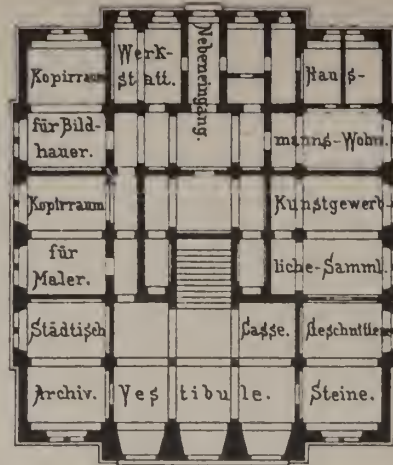 Kopirraum
Werk-
statt.
Nebeneingang.
Haus-
für Bild-
hauer.
manns-Wohn.
Kopirraum
Kunstgewerb-
für
Maler.
liche-Samml.
Städtisch
Casse.
Geschnittene
Archiv.
Vestibule.
Steine.